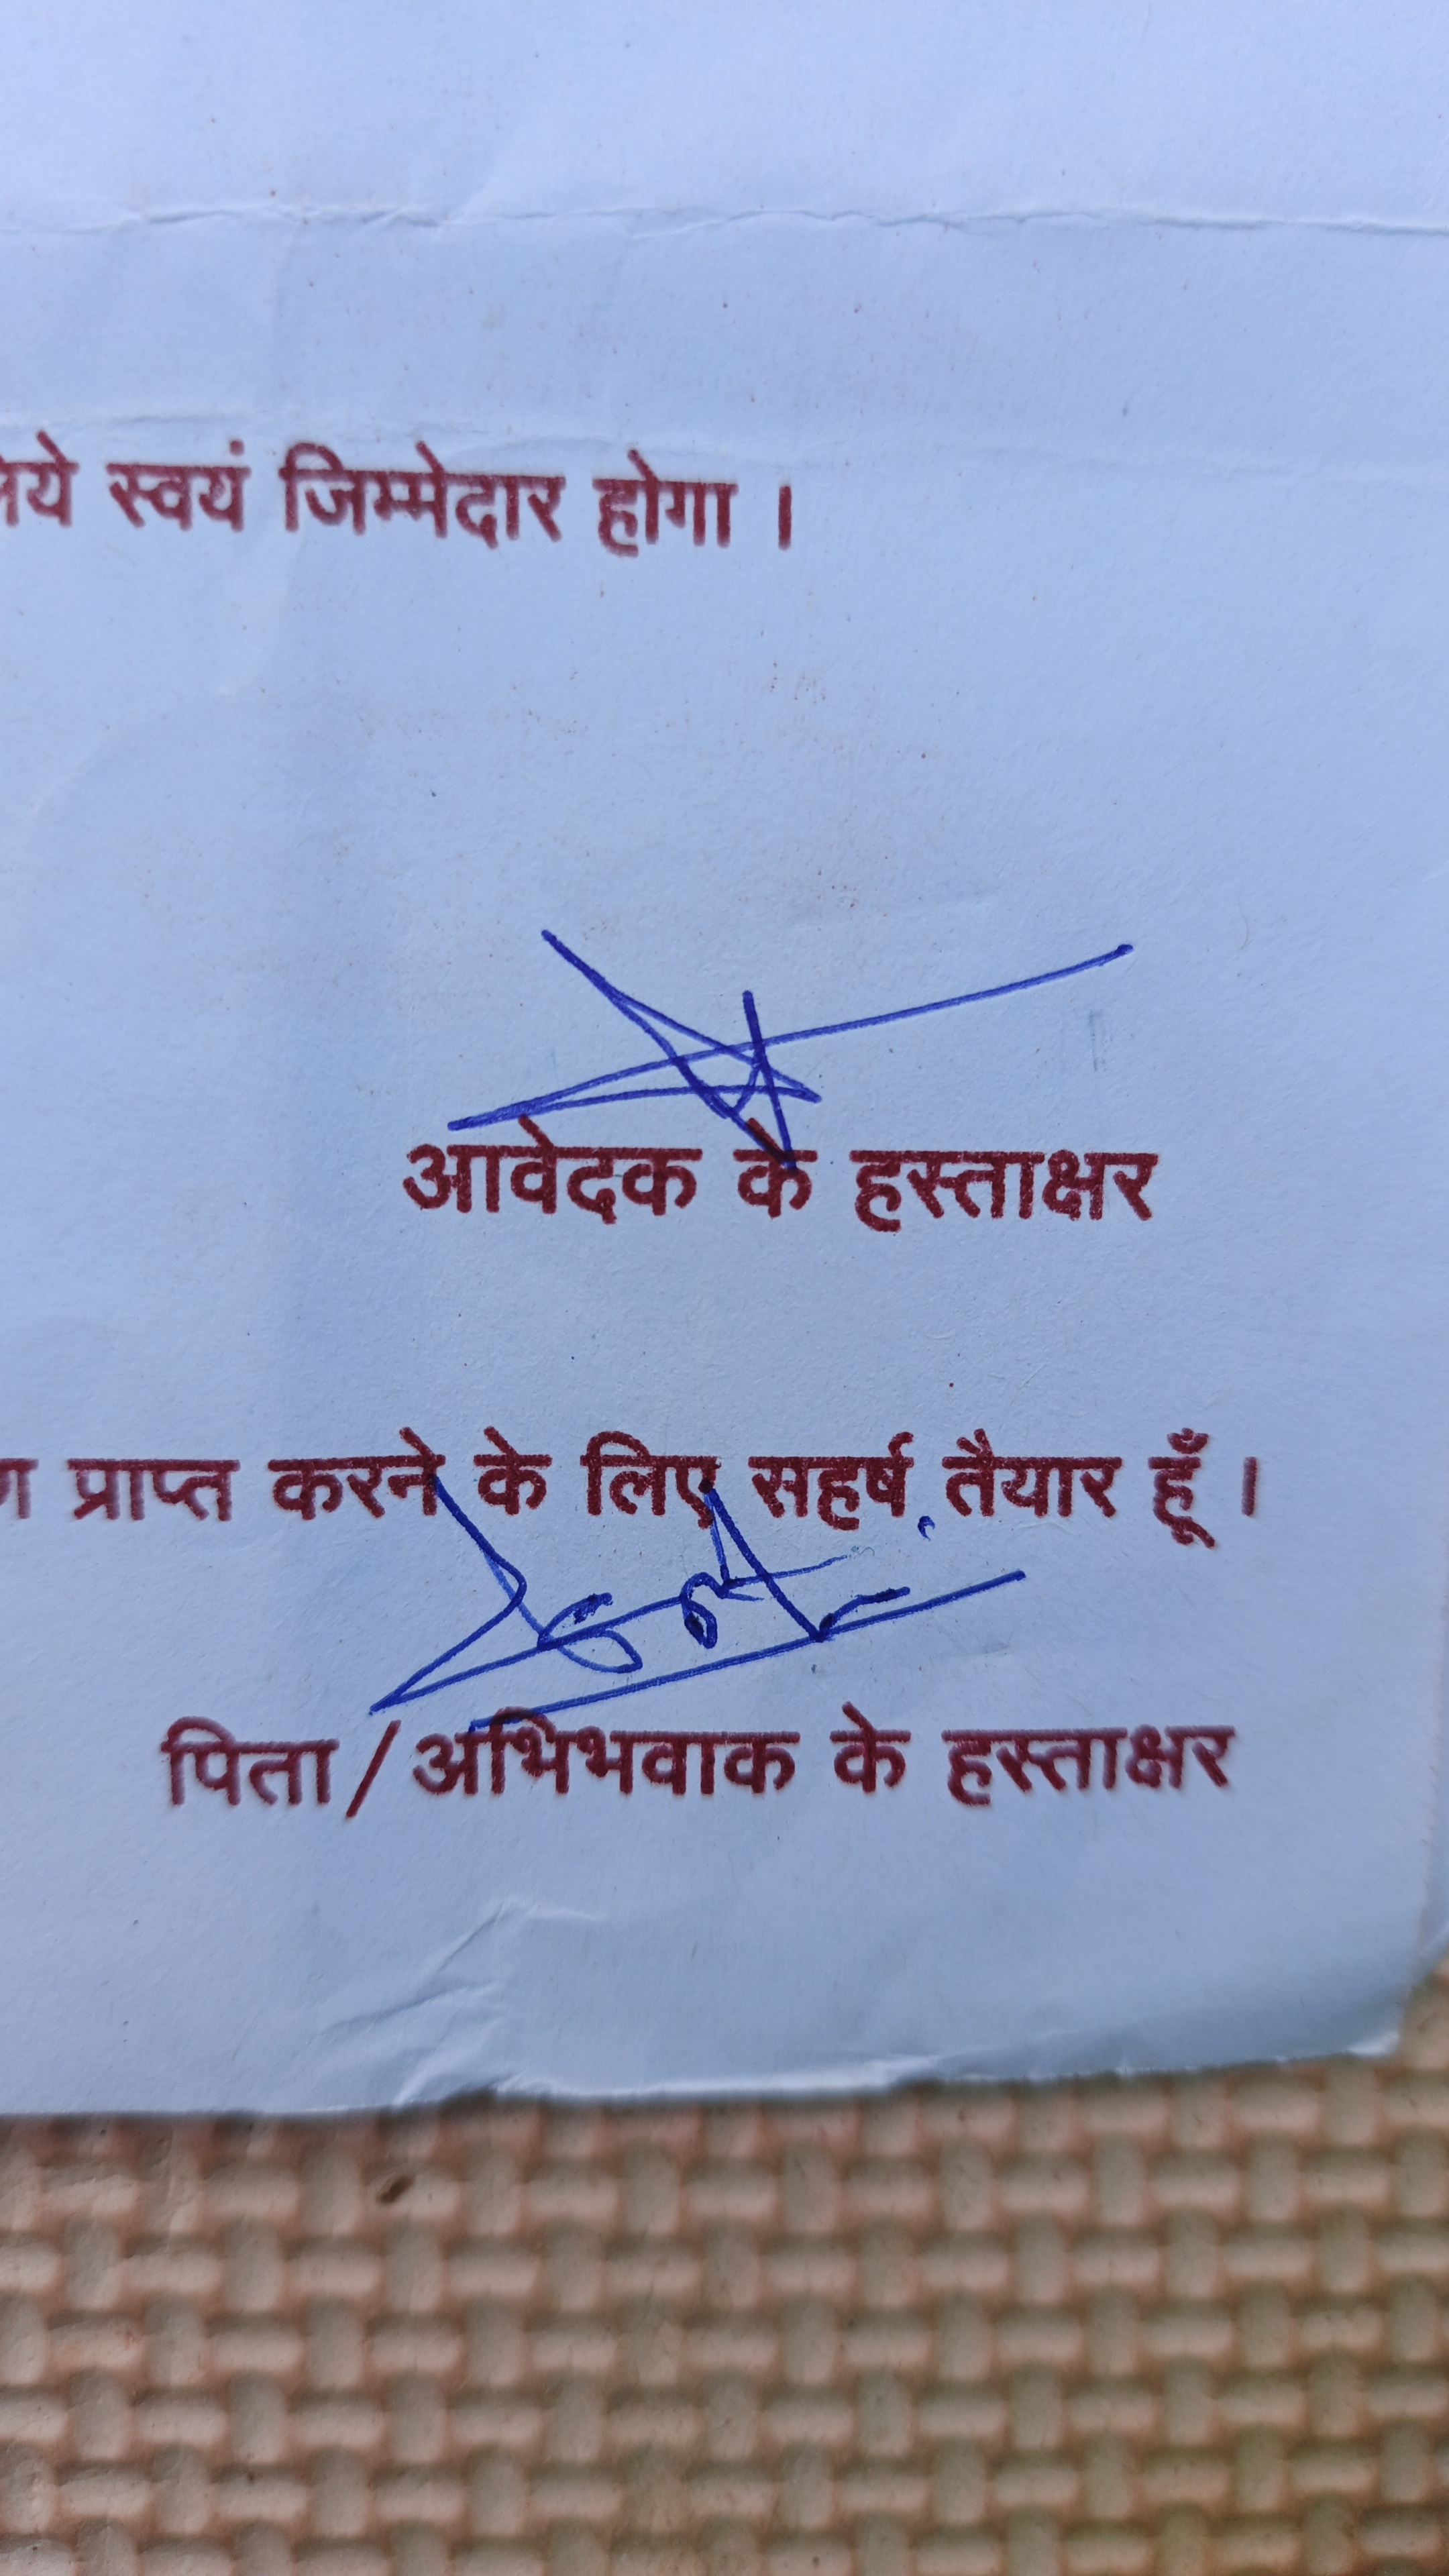 स्वयं जिम्मेदार होगा ।
आवेदक के हस्ताक्षर
प्राप्त करने के लिए सहर्ष तैयार हूँ ।
पिता / अभिभवाक के हस्ताक्षर